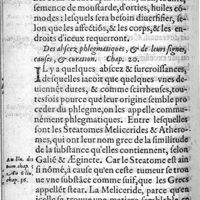 semence de moustarde, d'orties, huiles cõ-
modes : lesquels sera besoin diuersifier, se-
lon que les affectiõs, & les corps, & les en-
droits d'iceux requerront.
Des abscez phlegmatiques, & de leurs signes,
causes, & curation. Chap. 20.
IL y a quelques abscez & surcroissances,
desquelles iacoit que quelques vnes de-
uiennẽt dures, & comme scirrheuses, tou-
tesfois pource que leur origine semble pro-
ceder du phlegme, on les appelle commu-
nément phlegmatiques. Entre lesquels
sont les Steatomes Melicerides & Athero-
mes, qui ont leur nom de la similitude
de la substãce qu'elles contiennent, selon
Galiẽ & Æginete. Car le Steatome est ain
si nõmé, à cause qu'en ceste tumeur se trou
ue vne substãce comme suif, que les Grecs
appellẽt stear. La Meliceride, parce qu'en